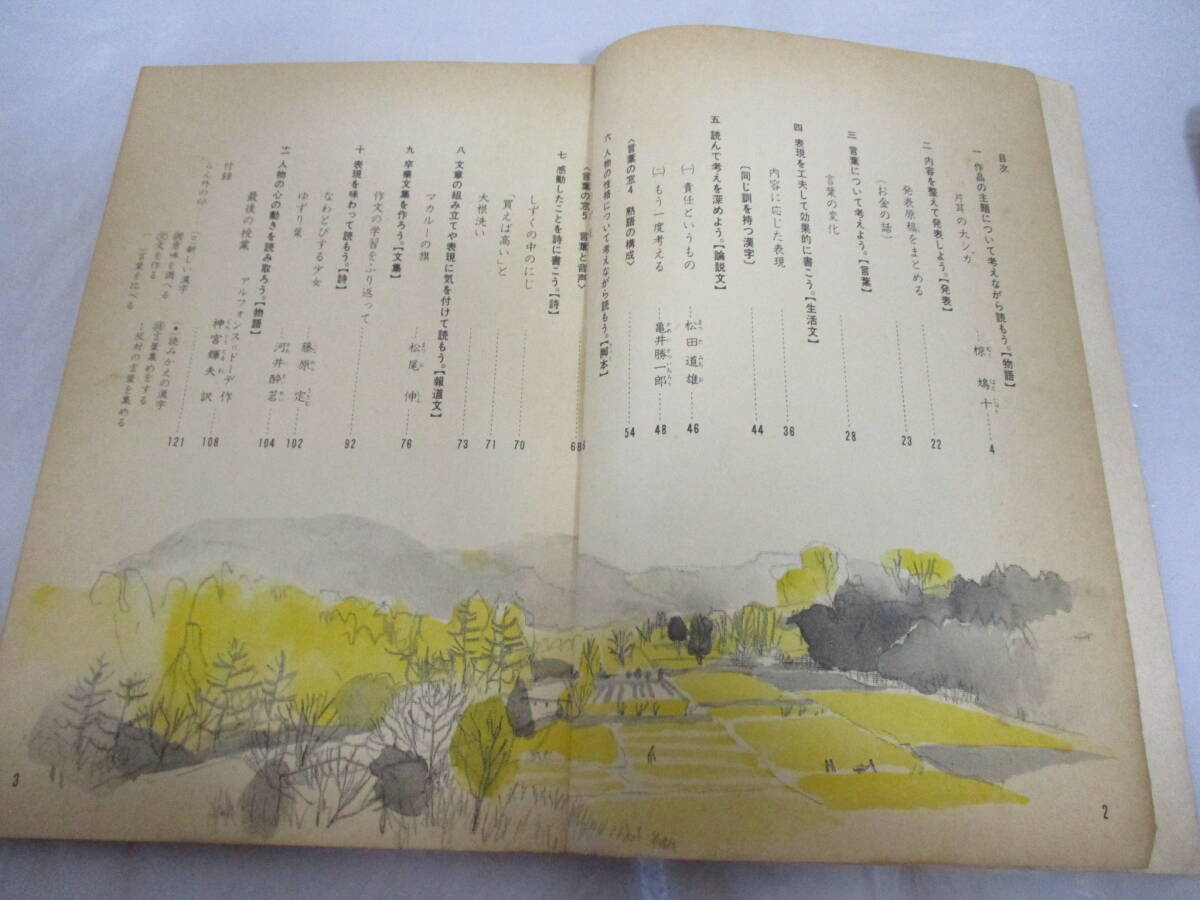 目次
一 作品の主題について考えながら読もう。【物語】
片耳の大シカ 椋 鳩十 4
二 内容を整えて発表しよう。【発表】 22
発表原稿をまとめる 23
(お金の話)
三 言葉について考えよう。【言葉】 28
言葉の変化
四 表現を工夫して効果的に書こう。【生活文】 36
内容に応じた表現
〔同じ訓を持つ漢字〕 44
五 読んで考えを深めよう。【論説文】
(一) 責任というもの 松田道雄 46
(二) もう一度考える 亀井勝一郎 48
〈言葉の窓4 熟語の構成〉 54
六 人物の性格について考えながら読もう。【脚本】
〈言葉の窓5 言葉と音声〉 68
七 感動したことを詩に書こう。【詩】
しずくの中のにじ 70
「買えば高い」と 71
大根洗い 73
八 文章の組み立てや表現に気を付けて読もう。【報道文】
マカルーの旗 松尾 伸 76
九 卒業文集を作ろう。【文集】
作文の学習をふり返って 92
十 表現を味わって読もう。【詩】
なわとびする少女 藤原 定 102
ゆずり葉 河井酔茗 104
十一 人物の心の動きを読み取ろう。【物語】
最後の授業 アルフォンス=ドーデ 作
神宮輝夫 訳 108
付録 121
新しい漢字
読みかえの漢字
意味を調べる
文を作る
言葉集めをする
言葉を比べる
反対の言葉を集める
2
3